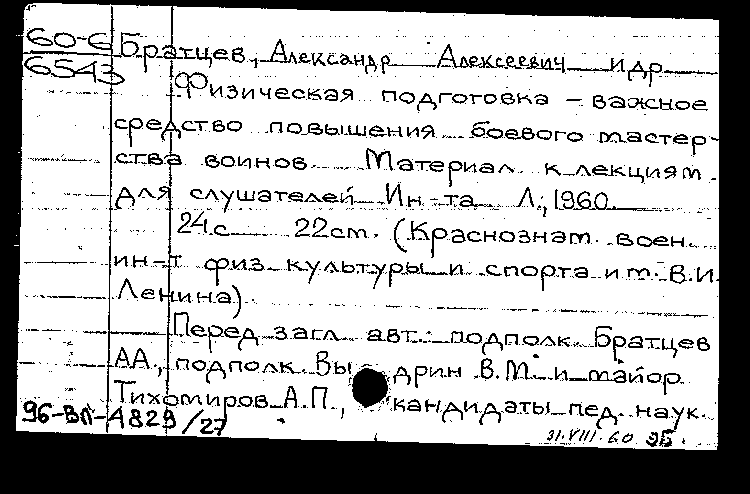 60-6 Братцев, Александр Алексеевич и др
6543
Физическая подготовка - важное
средство повышения боевого мастер-
ства воинов Материал к лекциям
для слушателей Ин-та Л., 1960
24с 22см. (Краснознам воен.
ин-т физ культуры и спорта им. В.И.
Ленина)
Перед загл авт: подполк. Братцев
АА., подполк. Выдрин В.М. и майор
Тихомиров А.П., кандидаты пед. наук.
96-ВЛ-А829/27
31.VIII.60